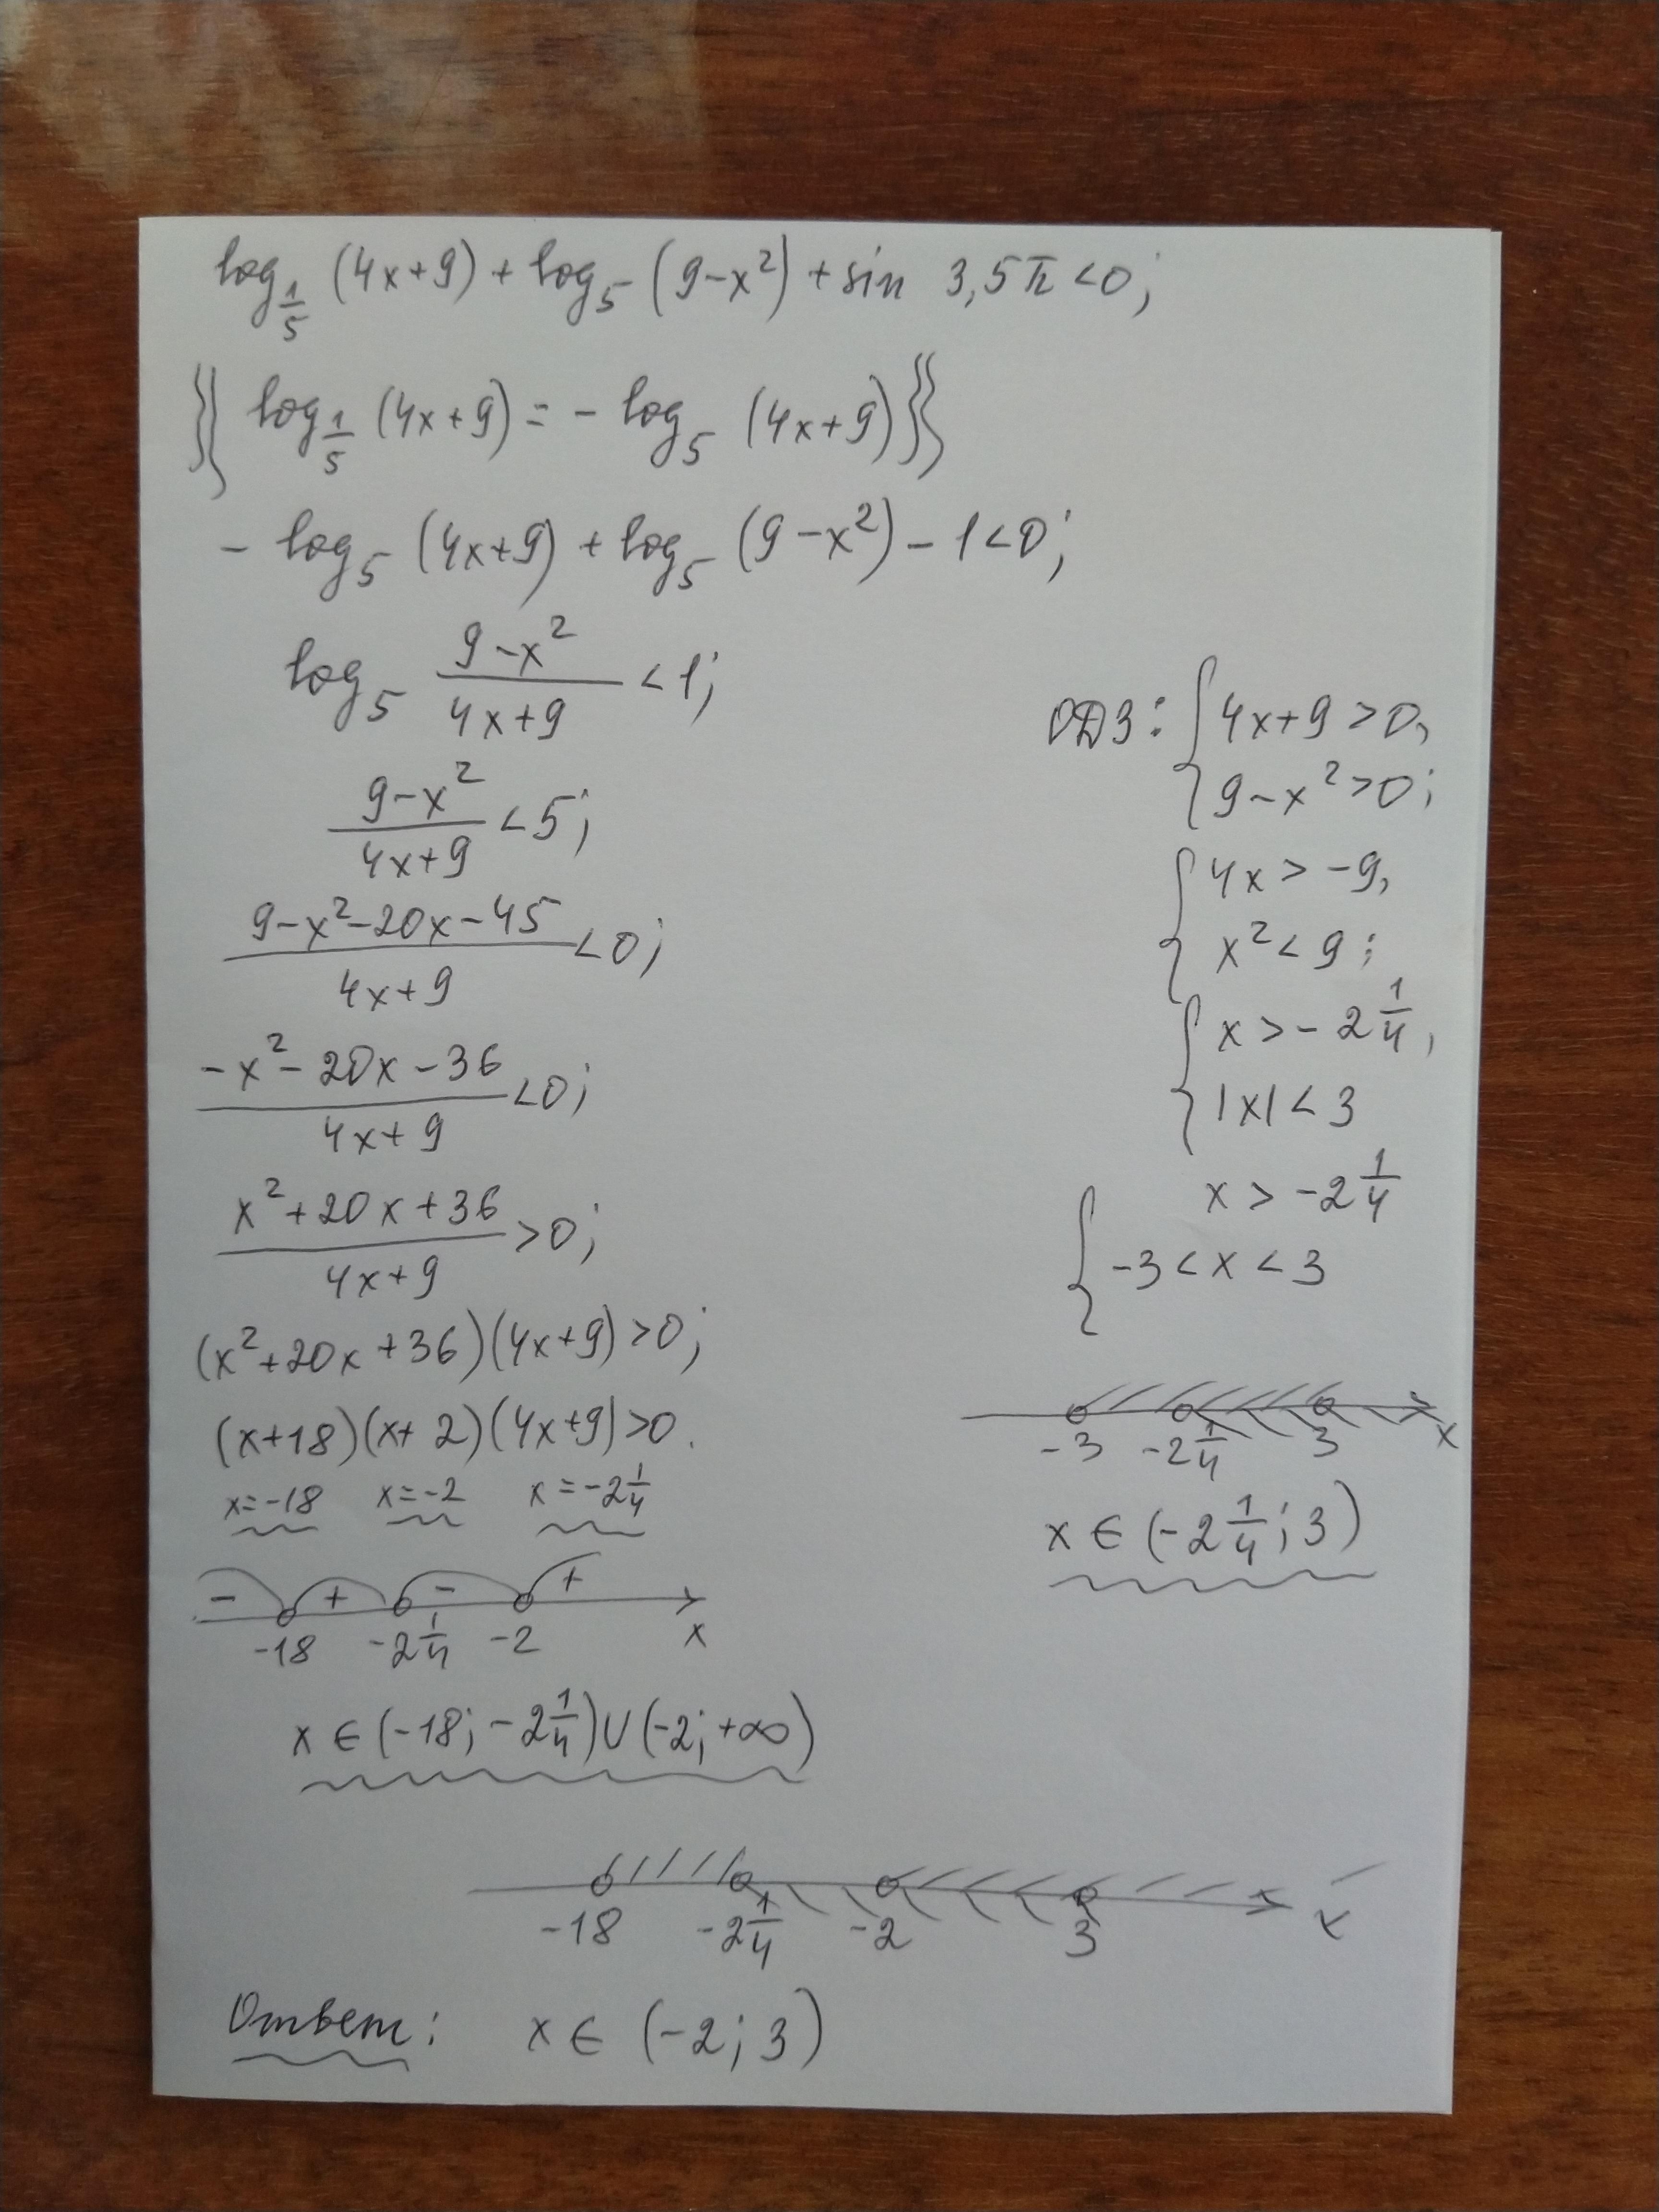 log_{1/5} (4x+9) + log_5 (9-x²) + sin 3,5π < 0;
{{ log_{1/5} (4x+9) = - log_5 (4x+9) }}
- log_5 (4x+9) + log_5 (9-x²) - 1 < 0;
log_5 (9-x²)/(4x+9) < 1;
(9-x²)/(4x+9) < 5;
(9-x²-20x-45)/(4x+9) < 0;
(-x²-20x-36)/(4x+9) < 0;
(x²+20x+36)/(4x+9) > 0;
(x²+20x+36)(4x+9) > 0;
(x+18)(x+2)(4x+9) > 0.
x=-18 x=-2 x=-2 1/4
- + - +
-18 -2 1/4 -2 x
x ∈ (-18; -2 1/4) ∪ (-2; +∞)
ОДЗ: { 4x+9 > 0,
9-x² > 0;
{ 4x > -9,
x² < 9;
{ x > -2 1/4,
|x| < 3
{ x > -2 1/4
-3 < x < 3
-3 -2 1/4 3 x
x ∈ (-2 1/4; 3)
-18 -2 1/4 -2 3 x
Ответ: x ∈ (-2; 3)